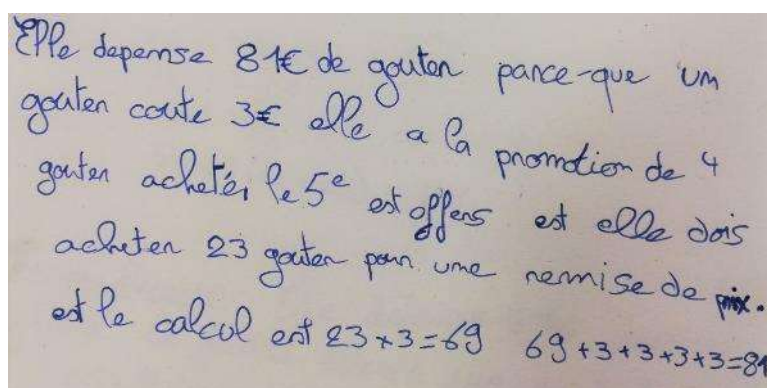 Elle depense 81€ de gouter parce-que un
gouter coute 3€ elle a la promotion de 4
gouter acheté, le 5e est offers est elle dois
acheter 23 gouter pour une remise de prix.
est le calcul est 23×3=69 69+3+3+3+3=81